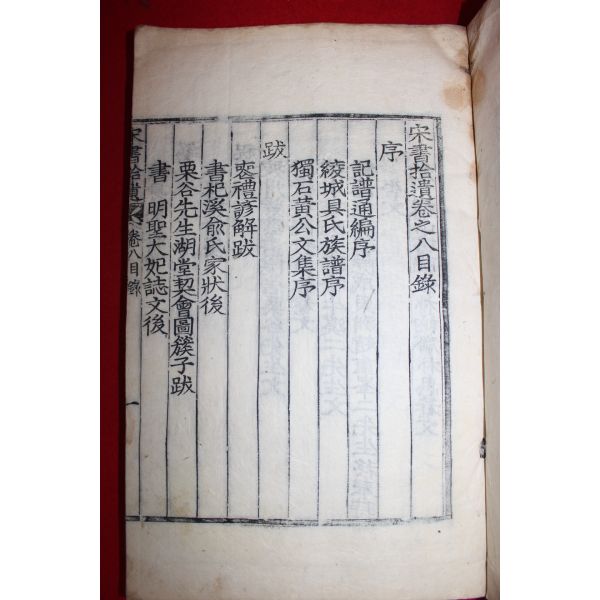 宋書拾遺卷之八目錄
序
記譜通編序
綾城具氏族譜序
獨石黃公文集序
跋
喪禮諺解跋
書杞溪兪氏家狀後
栗谷先生湖堂契會圖簇子跋
書 明聖大妃誌文後
宋書拾遺 卷八目錄 一